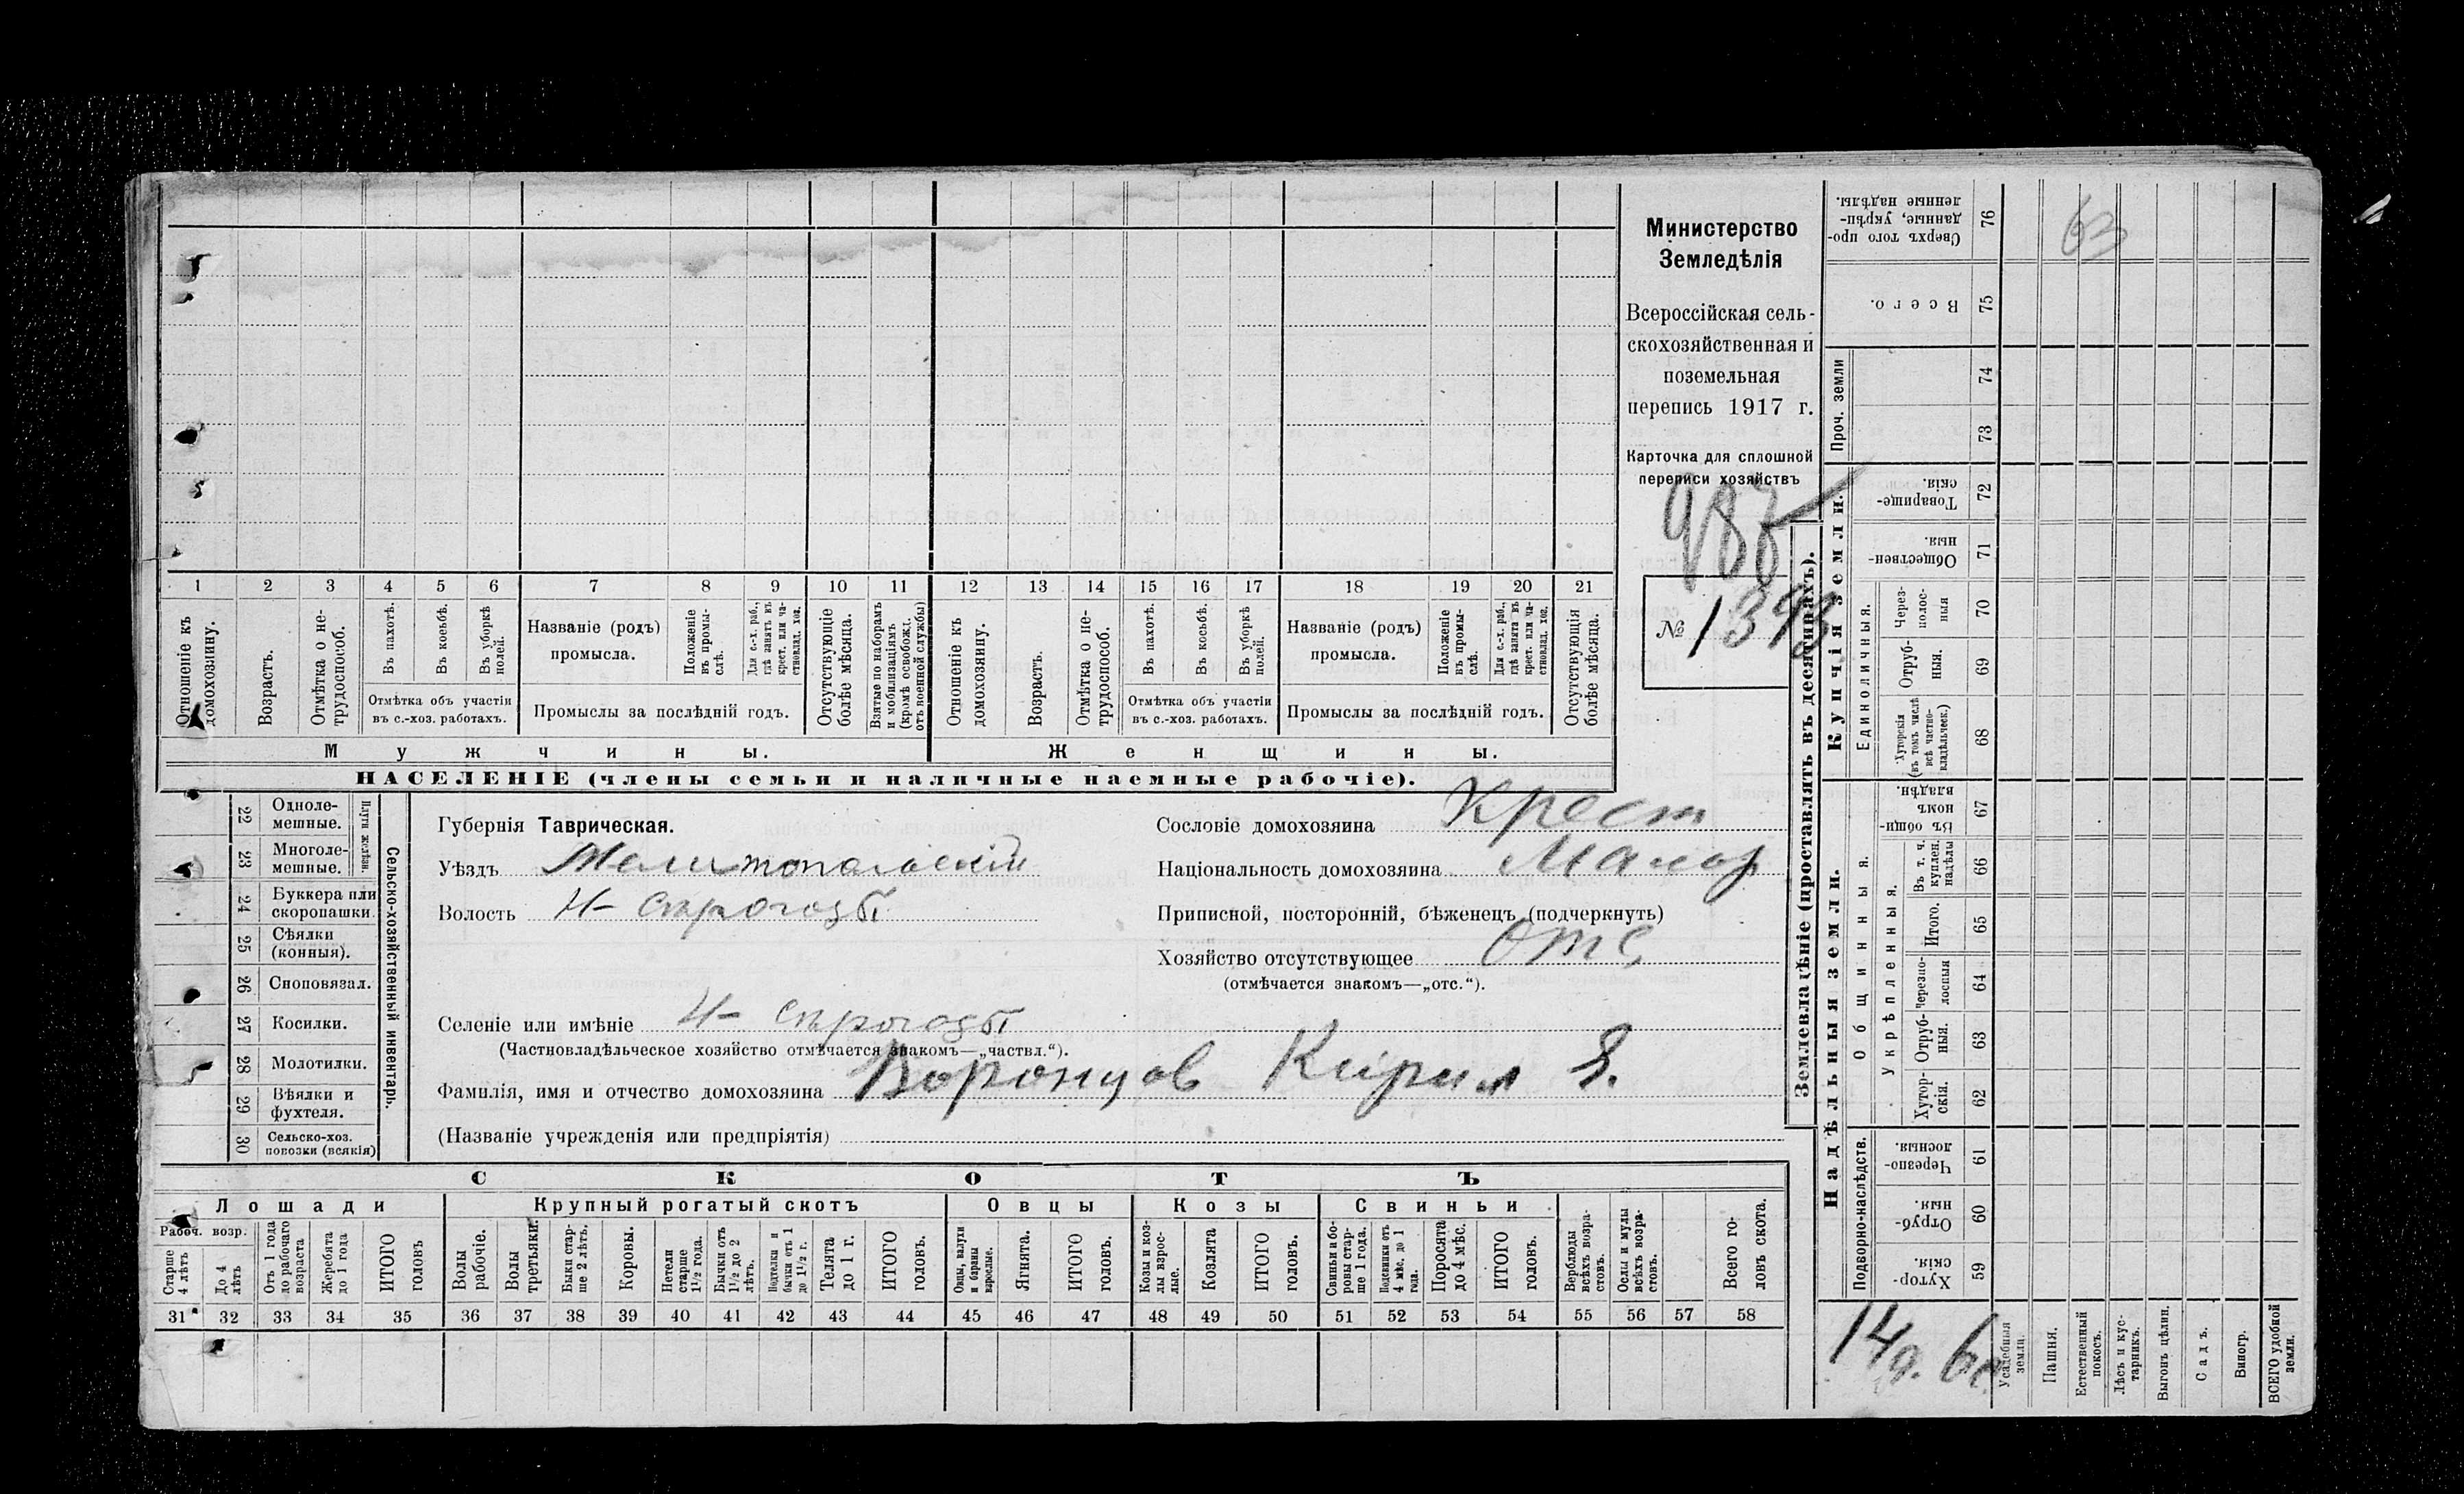 Министерство
Земледѣлія
Всероссійская сель-
скохозяйственная и
поземельная
перепись 1917 г.
Карточка для сплошной
переписи хозяйствъ
983
№ 1393
1 2 3 4 5 6 7 8 9 10 11 12 13 14 15 16 17 18 19 20 21
Отношеніе къ домохозяину.
Возрастъ.
Отмѣтка о не-трудоспособ.
Въ пахотѣ.
Въ косьбѣ.
Въ уборкѣ полей.
Отмѣтка объ участіи
въ с.-хоз. работахъ.
Названіе (родъ)
промысла.
Положеніе въ промы-слѣ.
Для с.-х. раб., гдѣ занятъ въ крест. или ча-стновлад. хоз.
Промыслы за послѣдній годъ.
Отсутствующіе болѣе мѣсяца.
Взятые по наборамъ и мобилизаціямъ (кромѣ освобожд. отъ военной службы)
Отношеніе къ домохозяину.
Возрастъ.
Отмѣтка о не-трудоспособ.
Въ пахотѣ.
Въ косьбѣ.
Въ уборкѣ полей.
Отмѣтка объ участіи
въ с.-хоз. работахъ.
Названіе (родъ)
промысла.
Положеніе въ промы-слѣ.
Для с.-х. раб., гдѣ занята въ крест. или ча-стновлад. хоз.
Промыслы за послѣдній годъ.
Отсутствующія болѣе мѣсяца.
Мужчины. Женщины.
НАСЕЛЕНІЕ (члены семьи и наличные наемные рабочіе).
22 Одноле-мешные.
23 Многоле-мешные.
Плуги желѣзн.
24 Буккера или скоропашки.
25 Сѣялки (конныя).
26 Сноповязал.
27 Косилки.
28 Молотилки.
29 Вѣялки и фухтеля.
30 Сельско-хоз. повозки (всякія)
Сельско-хозяйственный инвентарь.
Губернія Таврическая.
Уѣздъ Мелитопольскій
Волость Н- Сѣрогозы
Селеніе или имѣніе Н- Сѣрогозы
(Частновладѣльческое хозяйство отмѣчается знакомъ—„частвл.“).
Фамилія, имя и отчество домохозяина Воронцов Кирил Я.
(Названіе учрежденія или предпріятія)
Сословіе домохозяина Крест
Національность домохозяина Малор
Приписной, посторонній, бѣженецъ (подчеркнуть)
Хозяйство отсутствующее Отс,
(отмѣчается знакомъ—„отс.“).
СКОТЪ
Лошади Крупный рогатый скотъ Овцы Козы Свиньи
Рабоч. возр.
Старше 4 лѣтъ
До 4 лѣтъ
Отъ 1 года до рабочаго возраста
Жеребята до 1 года
ИТОГО головъ
Волы рабочіе.
Волы третьяки.
Быки стар-ше 2 лѣтъ.
Коровы.
Нетели старше 1½ года.
Бычки отъ 1½ до 2 лѣтъ.
Подтелки и бычки отъ 1 до 1½ г.
Телята до 1 г.
ИТОГО головъ.
Овцы, валухи и бараны взрослые.
Ягнята.
ИТОГО головъ.
Козы и коз-лы взрос-лые.
Козлята
ИТОГО головъ.
Свиньи и бо-ровы стар-ше 1 года.
Подсвинки отъ 4 мѣс. до 1 года.
Поросята до 4 мѣс.
ИТОГО головъ.
Верблюды всѣхъ возра-стовъ.
Ослы и мулы всѣхъ возра-стовъ.
Всего го-ловъ скота.
31 32 33 34 35 36 37 38 39 40 41 42 43 44 45 46 47 48 49 50 51 52 53 54 55 56 57 58
Землевладѣніе (проставлять въ десятинахъ).
Купчія земли.
Надѣльныя земли.
Сверхъ того про-данные, укрѣп-ленные надѣлы. 76
63
Всего. 75
Проч. земли
74
73
Товарище-скія. 72
Обществен-ныя. 71
Единоличныя.
Через-полос-ныя 70
Отруб-ныя. 69
Хуторскія (въ томъ числѣ всѣ частно-владѣльческ.) 68
Общинныя.
Въ общи-номъ владѣн. 67
Укрѣпленныя.
Въ т. ч. куплен. надѣлы 66
Итого. 65
Черезпо-лосныя 64
Отруб-ныя. 63
Хутор-скія. 62
Подворно-наслѣдств.
Черезпо-лосныя. 61
Отруб-ныя. 60
Хутор-скія. 59
14 д. 6
Усадебныя земли.
Пашня.
Естественный покосъ.
Лѣсъ и кус-тарникъ.
Выгонъ цѣлин.
Садъ.
Виногр.
ВСЕГО удобной земли.